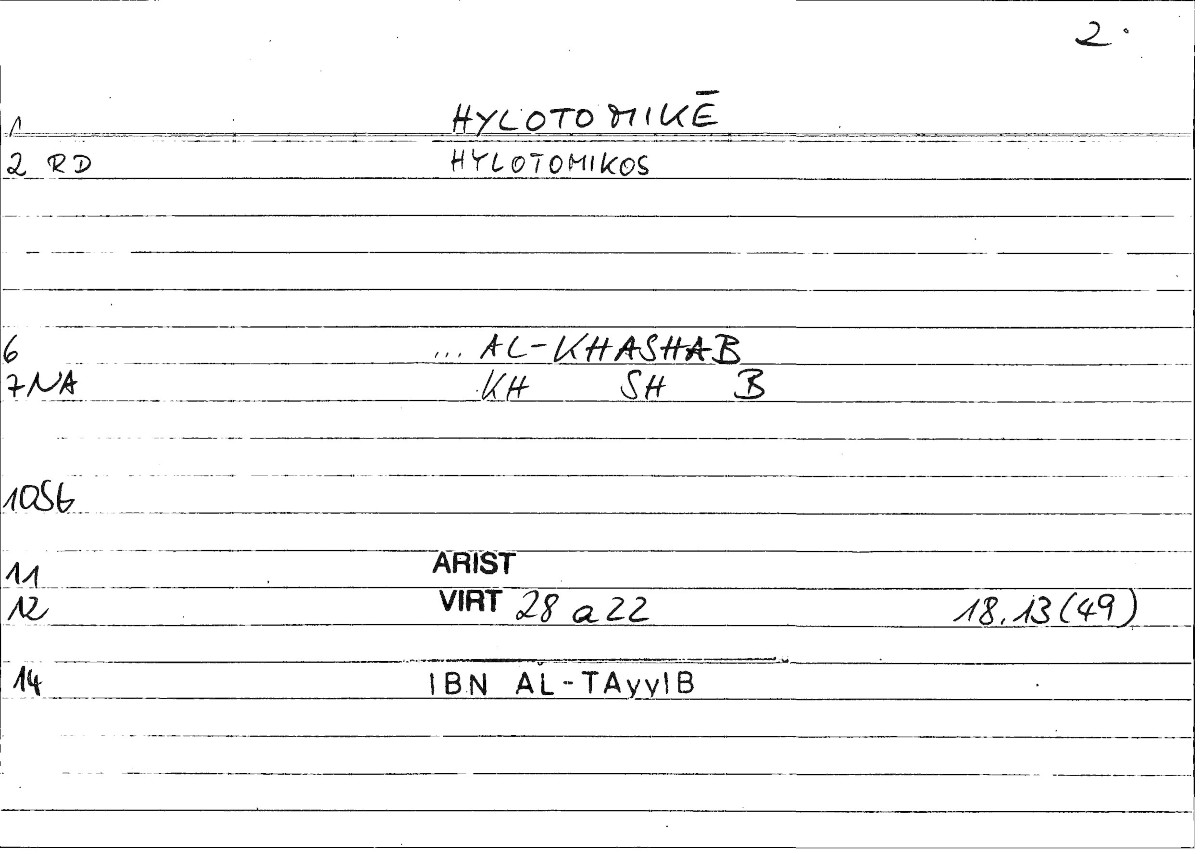 2.
1 HYLOTOMIKĒ
2 RD HYLOTOMIKOS
6 ... AL-KHASHAB
7 NA KH SH B
10 St
11 ARIST
12 VIRT 28 a 22 18.13 (49)
14 IBN AL-TAyyIB